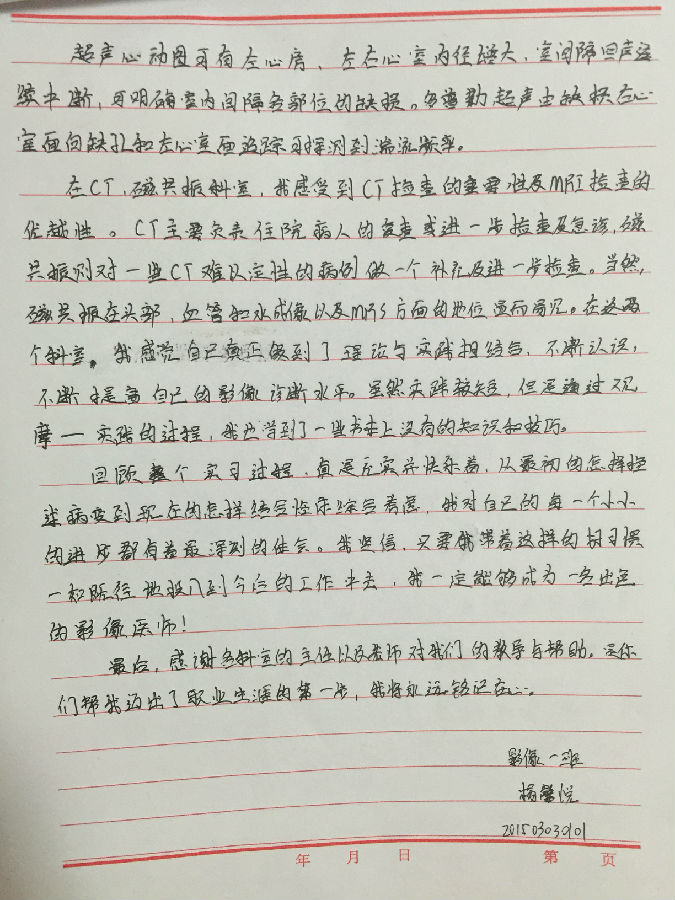 超声心动图可有左心房、左右心室内径增大,室间隔回声连
续中断,可明确室内间隔各部位的缺损。多普勒超声由缺损右心
室面向缺孔和左心室面追踪可探测到湍流频率。
在CT、磁共振科室,我感受到CT检查的重要性及MRI检查的
优越性。CT主要负责住院病人的复查或进一步检查及急诊,磁
共振则对一些CT难以定性的病例做一个补充及进一步检查。当然,
磁共振在头部,血管和水成像以及MRS方面的地位显而易见。在这两
个科室,我感觉自己真正做到了理论与实践相结合,不断认识,
不断提高自己的影像诊断水平。虽然实践较短,但是通过观
摩—实践的过程,我也学到了一些书本上没有的知识和技巧。
回顾整个实习过程,真是充实并快乐着,从最初的怎样描
述病变到现在的怎样结合临床综合考虑,我对自己的每一个小小
的进步都有着最深刻的体会。我坚信,只要我带着这样的好习惯
一如既往地投入到今后的工作中去,我一定能够成为一名出色
的影像医师!
最后,感谢各科室的主任以及老师对我们的教导与帮助。是你
们帮我迈出了职业生涯的第一步,我将永远铭记在心。
影像一班
杨 悦
2015030301
年 月 日 第 页